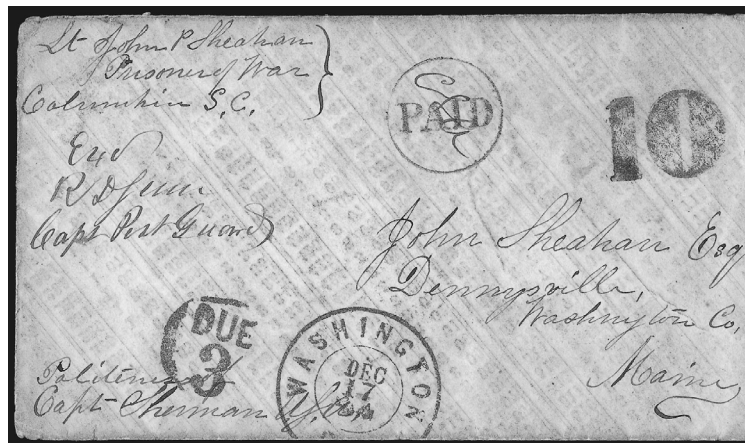 Lt John P Sheahan
Prisoner of War
Columbia S.C.
PAID
10
Exd
Capt Post Guard
John Sheahan Esq
Dennysville,
Washington Co,
Maine
DUE
3
WASHINGTON
DEC
17
Politeness
Capt Sherman